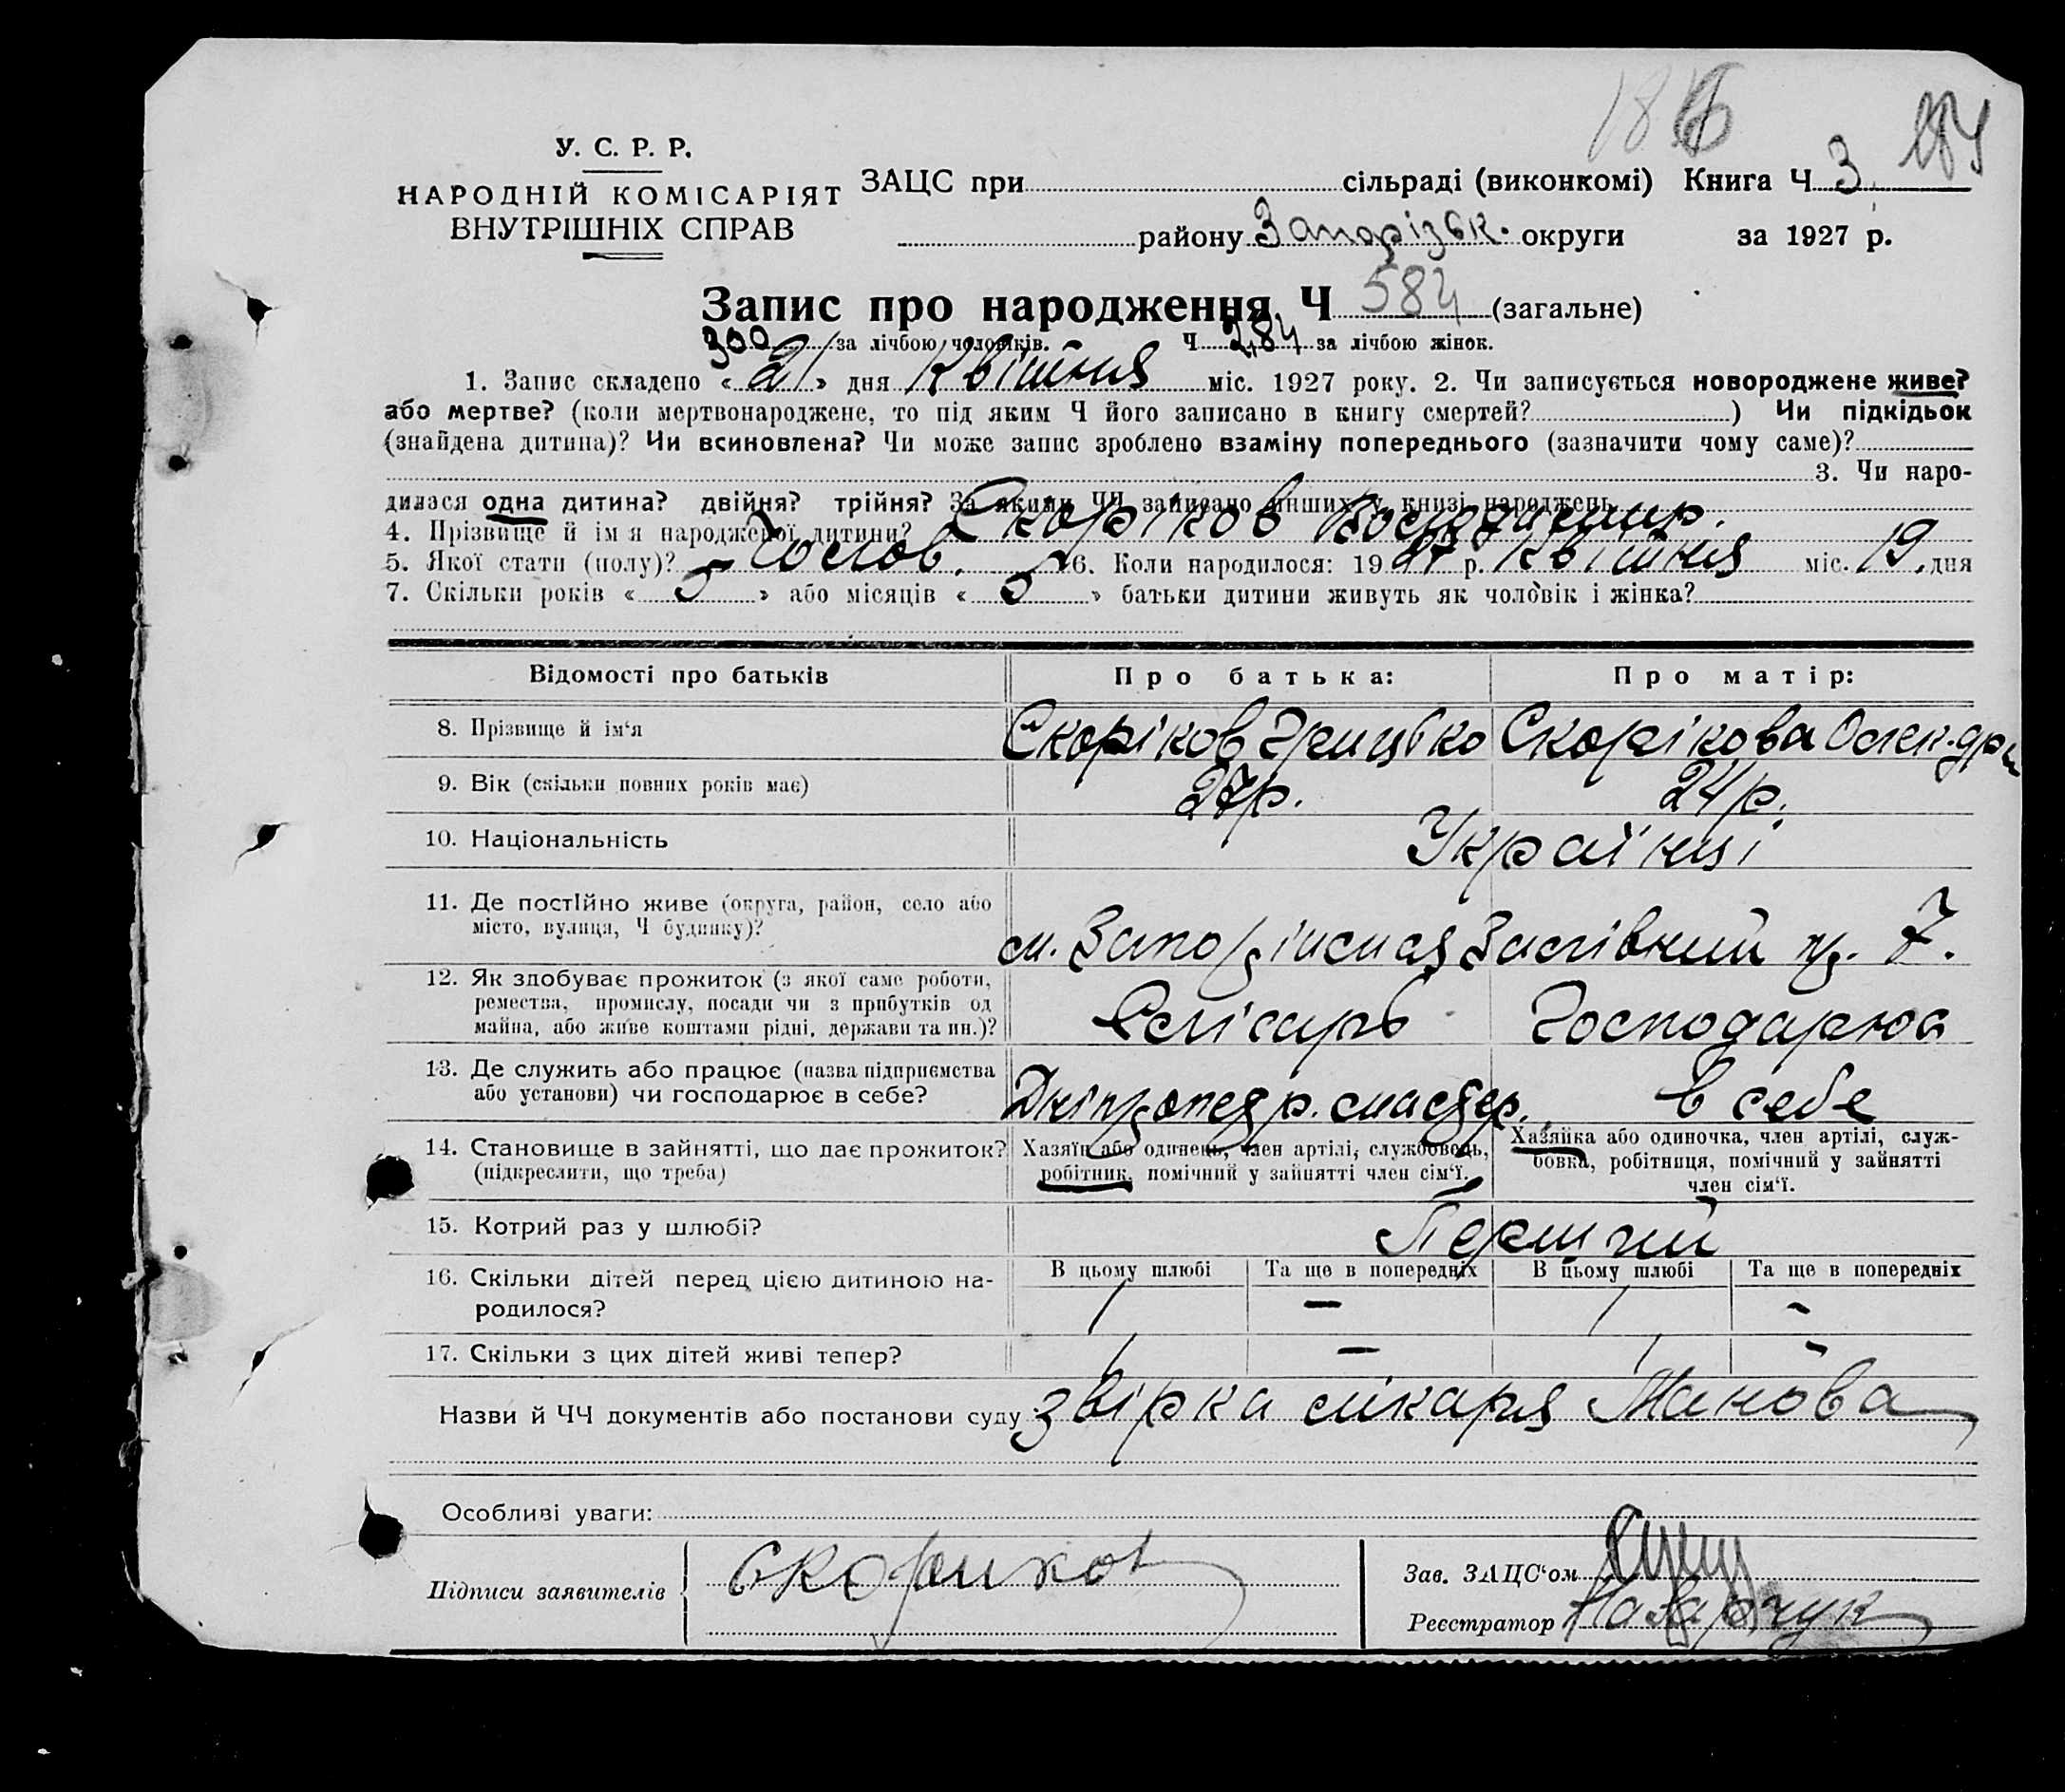 186
У. С. Р. Р.
НАРОДНІЙ КОМІСАРІЯТ
ВНУТРІШНІХ СПРАВ
ЗАЦС при сільраді (виконкомі) Книга Ч 3
району Запорізьк. округи за 1927 р.
Запис про народження Ч 584 (загальне)
300 за лічбою чоловіків. Ч 284 за лічбою жінок.
1. Запис складено « 21 » дня Квітня міс. 1927 року. 2. Чи записується новороджене живе?
або мертве? (коли мертвонароджене, то під яким Ч його записано в книгу смертей? ) Чи підкідьок
(знайдена дитина)? Чи всиновлена? Чи може запис зроблено взаміну попереднього (зазначити чому саме)?
3. Чи наро-
дилася одна дитина? двійня? трійня? За якими ЧЧ записано инших у книзі народжень
4. Прізвище й ім'я народженої дитини? Скоріков Володимир.
5. Якої стати (полу)? Чолов. 6. Коли народилося: 1927 р. Квітня міс. 19. дня
7. Скільки років « 5 » або місяців « 5 » батьки дитини живуть як чоловік і жінка?
Відомості про батьків Про батька: Про матір:
8. Прізвище й ім'я Скоріков Грицько Скорікова Олек-дра
9. Вік (скільки повних років має) 27р. 24р.
10. Національність Українці
11. Де постійно живе (округа, район, село або
місто, вулиця, Ч будинку)?
м. Запоріжжя Залівний пр. 7.
12. Як здобуває прожиток (з якої саме роботи,
ремества, промислу, посади чи з прибутків од
майна, або живе коштами рідні, держави та ин.)?
Слісарь Господарює
13. Де служить або працює (назва підприємства
або установи) чи господарює в себе?
в себе
14. Становище в зайнятті, що дає прожиток?
(підкреслити, що треба)
Хазяїн або одинець, член артілі, службовець,
робітник, помічний у зайнятті член сім'ї.
Хазяйка або одиночка, член артілі, служ-
бовка, робітниця, помічний у зайнятті
член сім'ї.
15. Котрий раз у шлюбі? Перший
16. Скільки дітей перед цією дитиною на-
родилося?
В цьому шлюбі Та ще в попередніх В цьому шлюбі Та ще в попередніх
1 — 1 —
17. Скільки з цих дітей живі тепер? 1 — 1 —
Назви й ЧЧ документів або постанови суду звірка лікаря Манова
Особливі уваги:
Підписи заявителів Скориков
Зав. ЗАЦС'ом
Реєстратор Назарчук